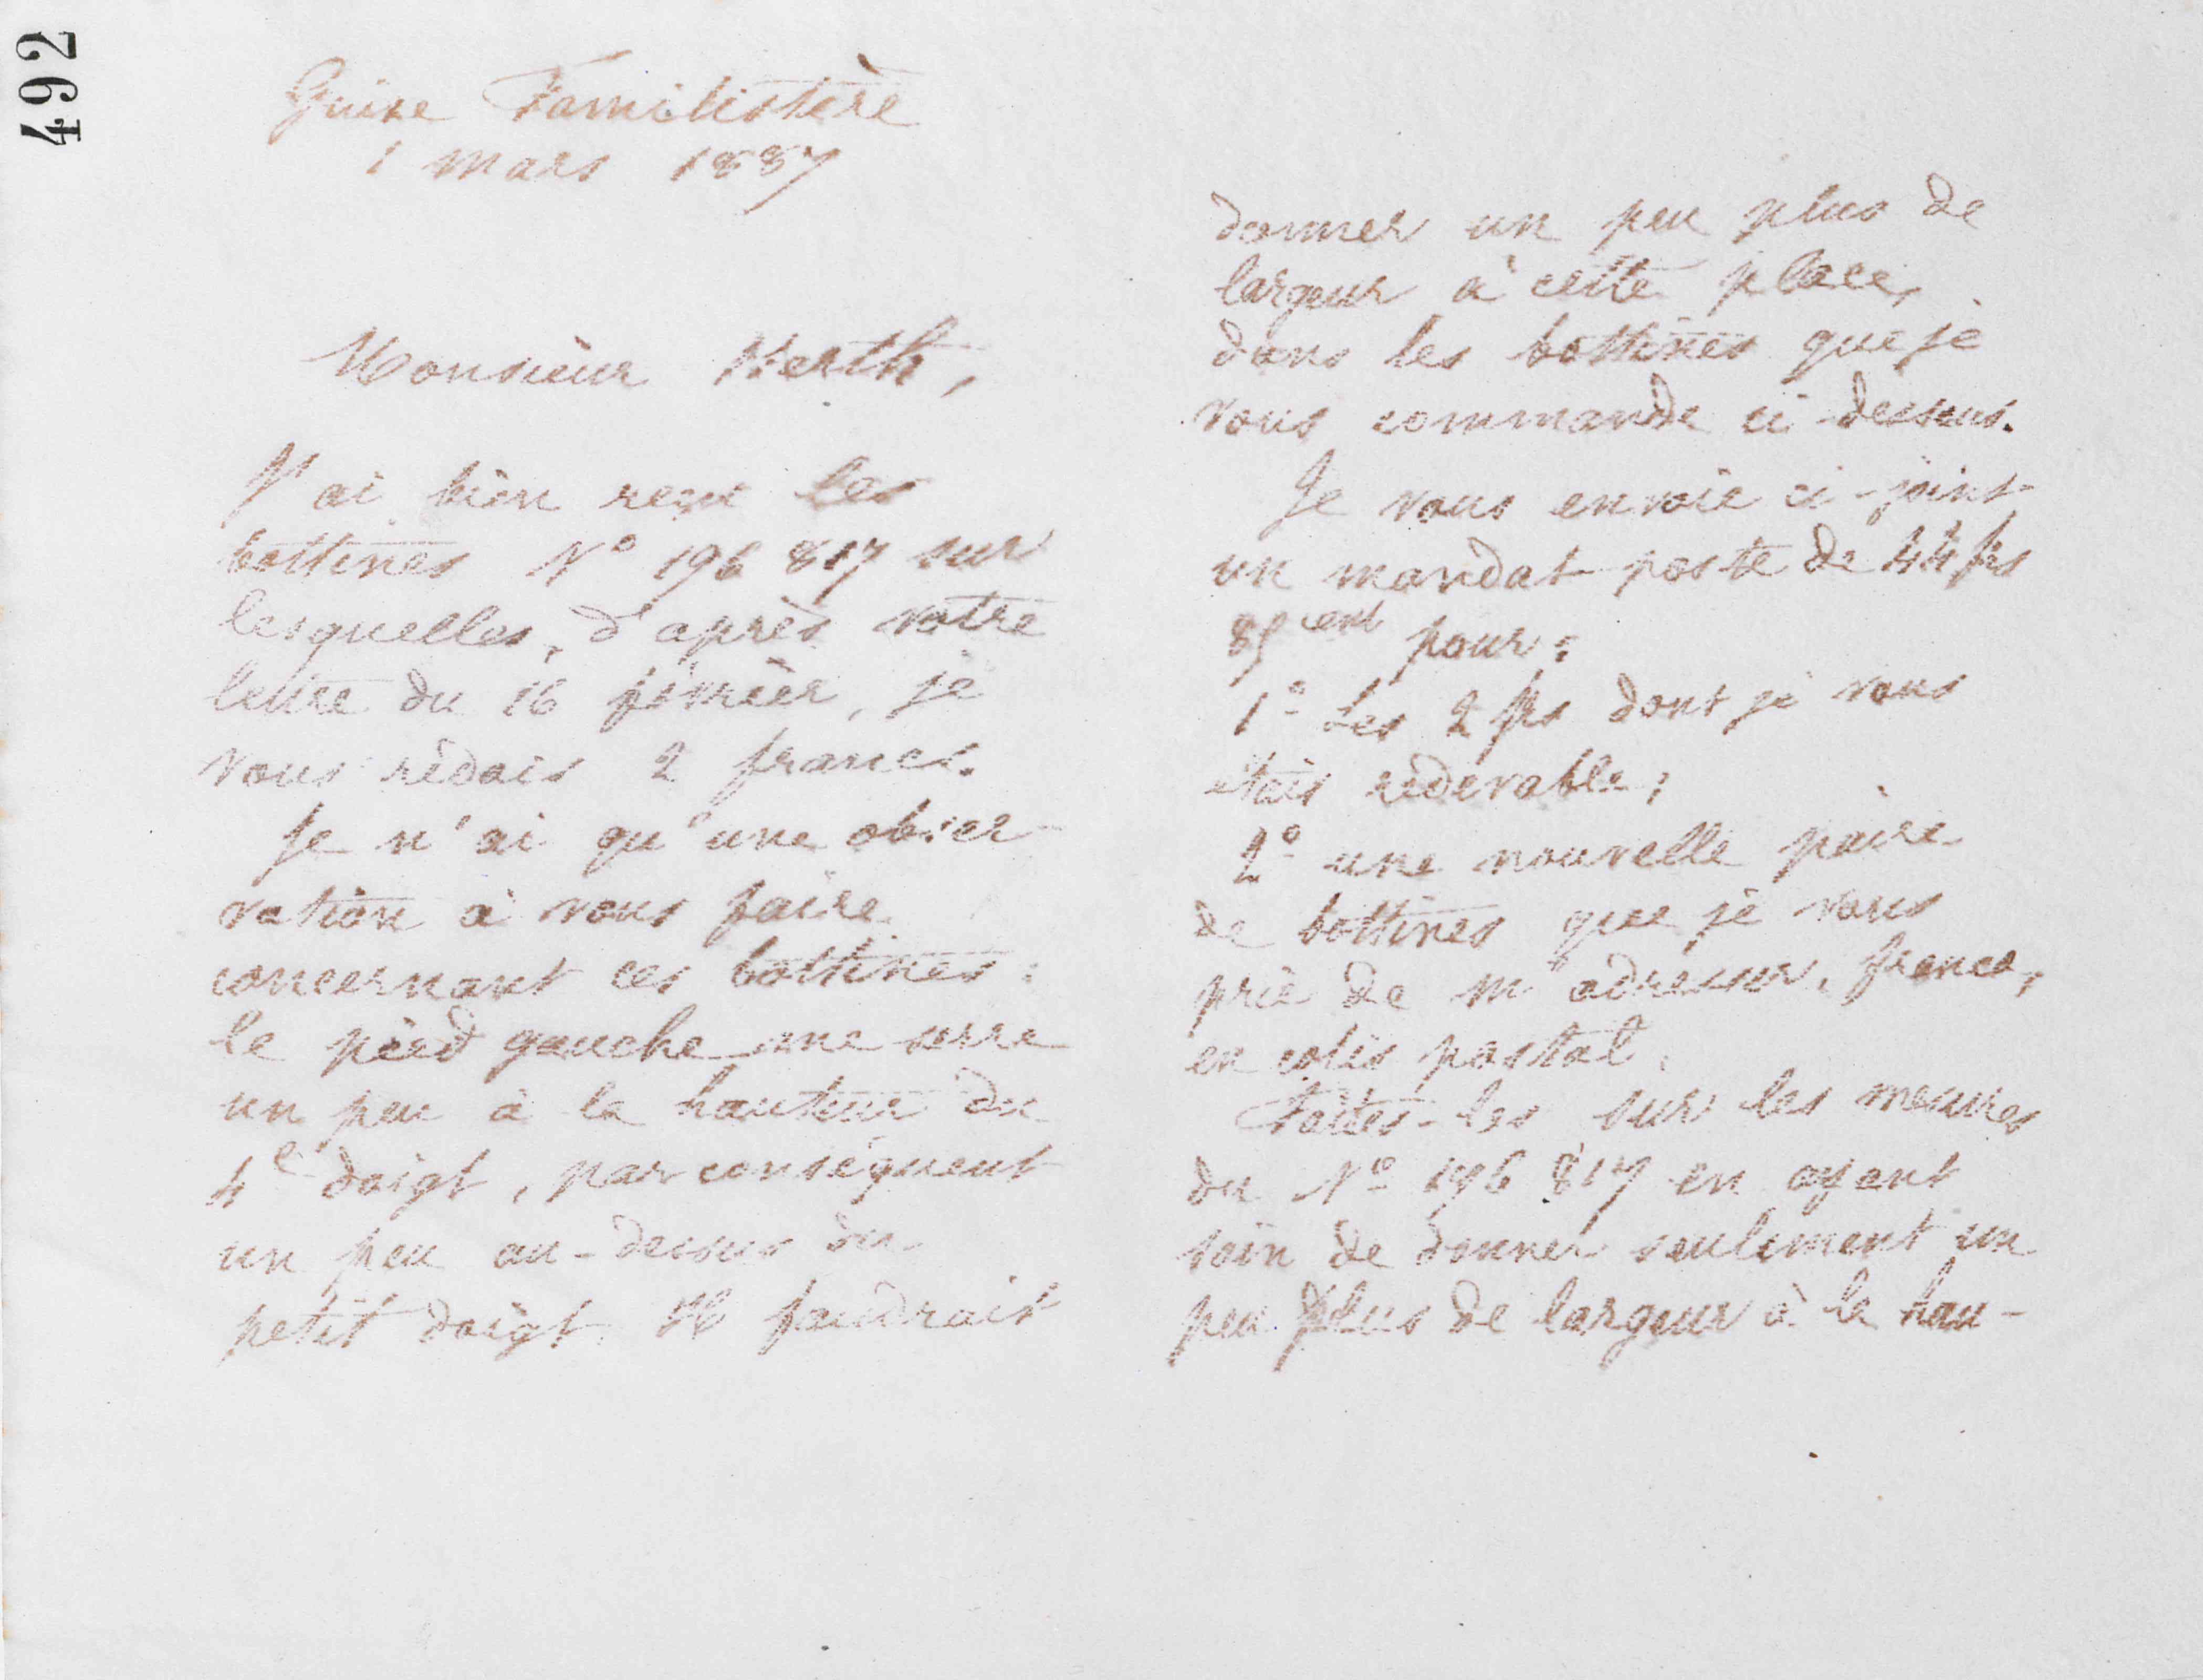 492
Guise Familistère
1 mars 1887
Monsieur Werth,
J'ai bien reçu les
bottines N° 196 817 sur
lesquelles, d'après votre
lettre du 16 février, je
vous redois 2 francs.
Je n'ai qu'une obser-
vation à vous faire
concernant ces bottines :
le pied gauche me serre
un peu à la hauteur du
4e doigt, par conséquent
un peu au-dessus du
petit doigt. Il faudrait
donner un peu plus de
largeur à cette place,
dans les bottines que je
vous commande ci-dessous.
Je vous envoie ci-joint
un mandat poste de 44 frs
85 cent pour :
1° Les 2 frs dont je vous
étais redevable ;
2° une nouvelle paire
de bottines que je vous
prie de m'adresser, franco,
en colis postal.
Faites-les sur les mesures
du N° 196 817 en ayant
soin de donner seulement un
peu plus de largeur à la hau-